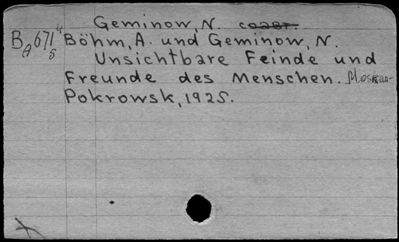 Geminow, N. соавт.
Bg 671 4/5
Böhm, A. und Geminow, N.
Unsichtbare Feinde und
Freunde des Menschen. Moskau-
Pokrowsk, 1925.